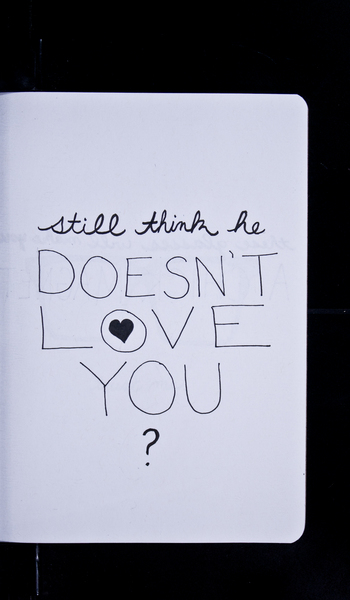 still think he
DOESN'T
LOVE
YOU
?